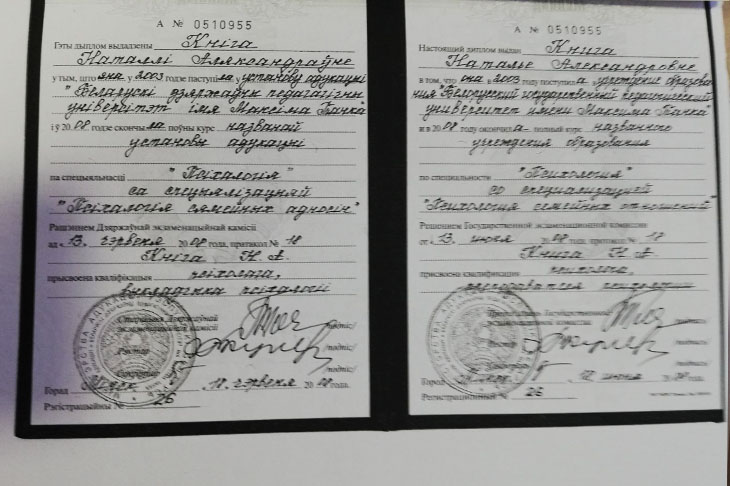 А № 0510955
Гэты дыплом выдадзены Кніга
Наталлі Аляксандраўне
у тым, што яна у 2003 годзе паступіла ў установу адукацыі
"Беларускі дзяржаўны педагагічны
універсітэт імя Максіма Танка"
і ў 2008 годзе скончыла поўны курс названай
установы адукацыі
па спецыяльнасці "Псіхалогія"
са спецыялізацыяй
"Псіхалогія сямейных адносін"
Рашэннем Дзяржаўнай экзаменацыйнай камісіі
ад "13" чэрвеня 2008 года, пратакол № 18
Кніга Н.А.
прысвоена кваліфікацыя псіхолага,
выкладчыка псіхалогіі
Старшыня Дзяржаўнай
экзаменацыйнай камісіі /подпіс/
Рэктар /подпіс/
Сакратар /подпіс/
Горад Мінск 18 чэрвеня 2008 года.
Рэгістрацыйны № 26
А № 0510955
Настоящий диплом выдан Книга
Наталье Александровне
в том, что она в 2003 году поступила в учреждение образова-
ния "Белорусский государственный педагогический
университет имени Максима Танка"
и в 2008 году окончила полный курс названного
учреждения образования
по специальности "Психология"
со специализацией
"Психология семейных отношений"
Решением Государственной экзаменационной комиссии
от "13" июня 2008 года, протокол № 18
Книга Н.А.
присвоена квалификация психолога,
преподавателя психологии
Председатель Государственной
экзаменационной комиссии /подпись/
Ректор /подпись/
/подпись/
Город июня 2008 года.
Регистрационный № 26